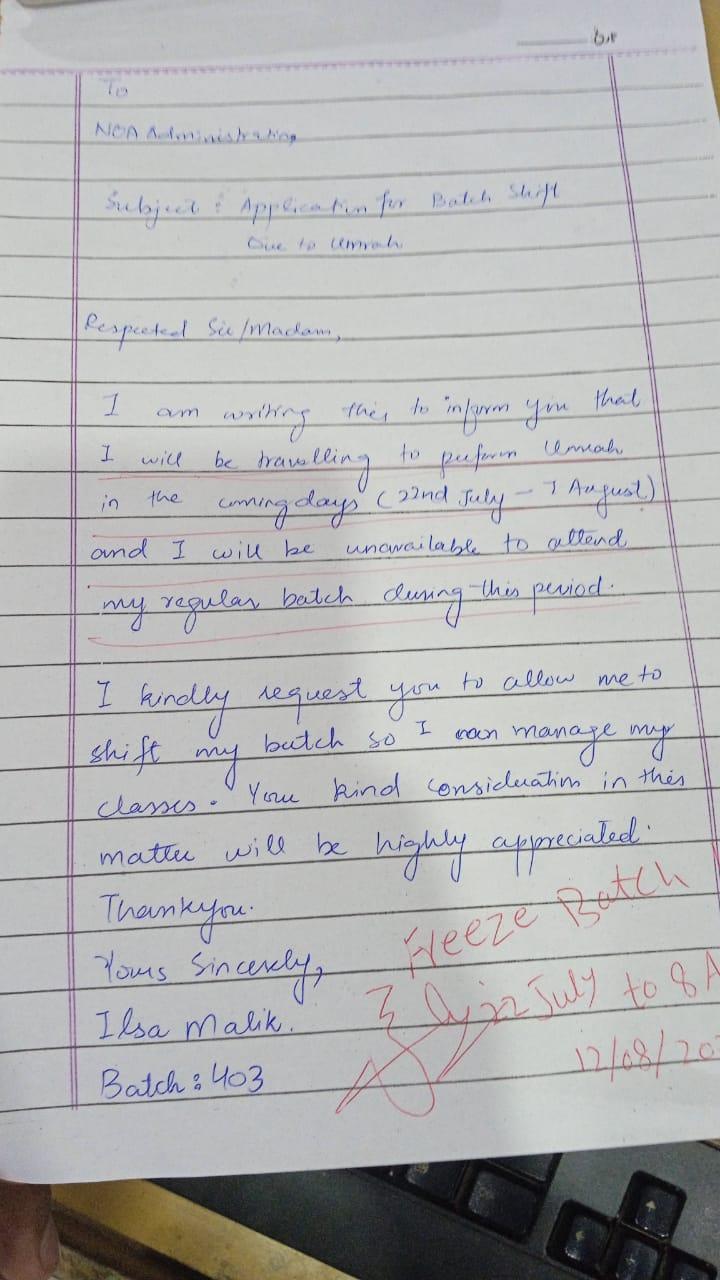 To
NOA Administration
Subject : Application for Batch Shift
Due to Umrah
Respected Sir/Madam,
I am writing this to inform you that
I will be travelling to perform Umrah
in the coming days (22nd July - 7 August)
and I will be unavailable to attend
my regular batch during this period.
I kindly request you to allow me to
shift my batch so I can manage my
classes. Your kind consideration in this
matter will be highly appreciated.
Thankyou.
Yours Sincerely,
Ilsa Malik.
Batch : 403
Freeze Batch
22 July to 8 A
12/08/20